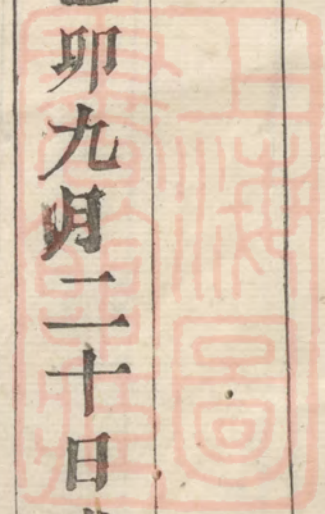 卯九月二十日
上海圖
書館藏